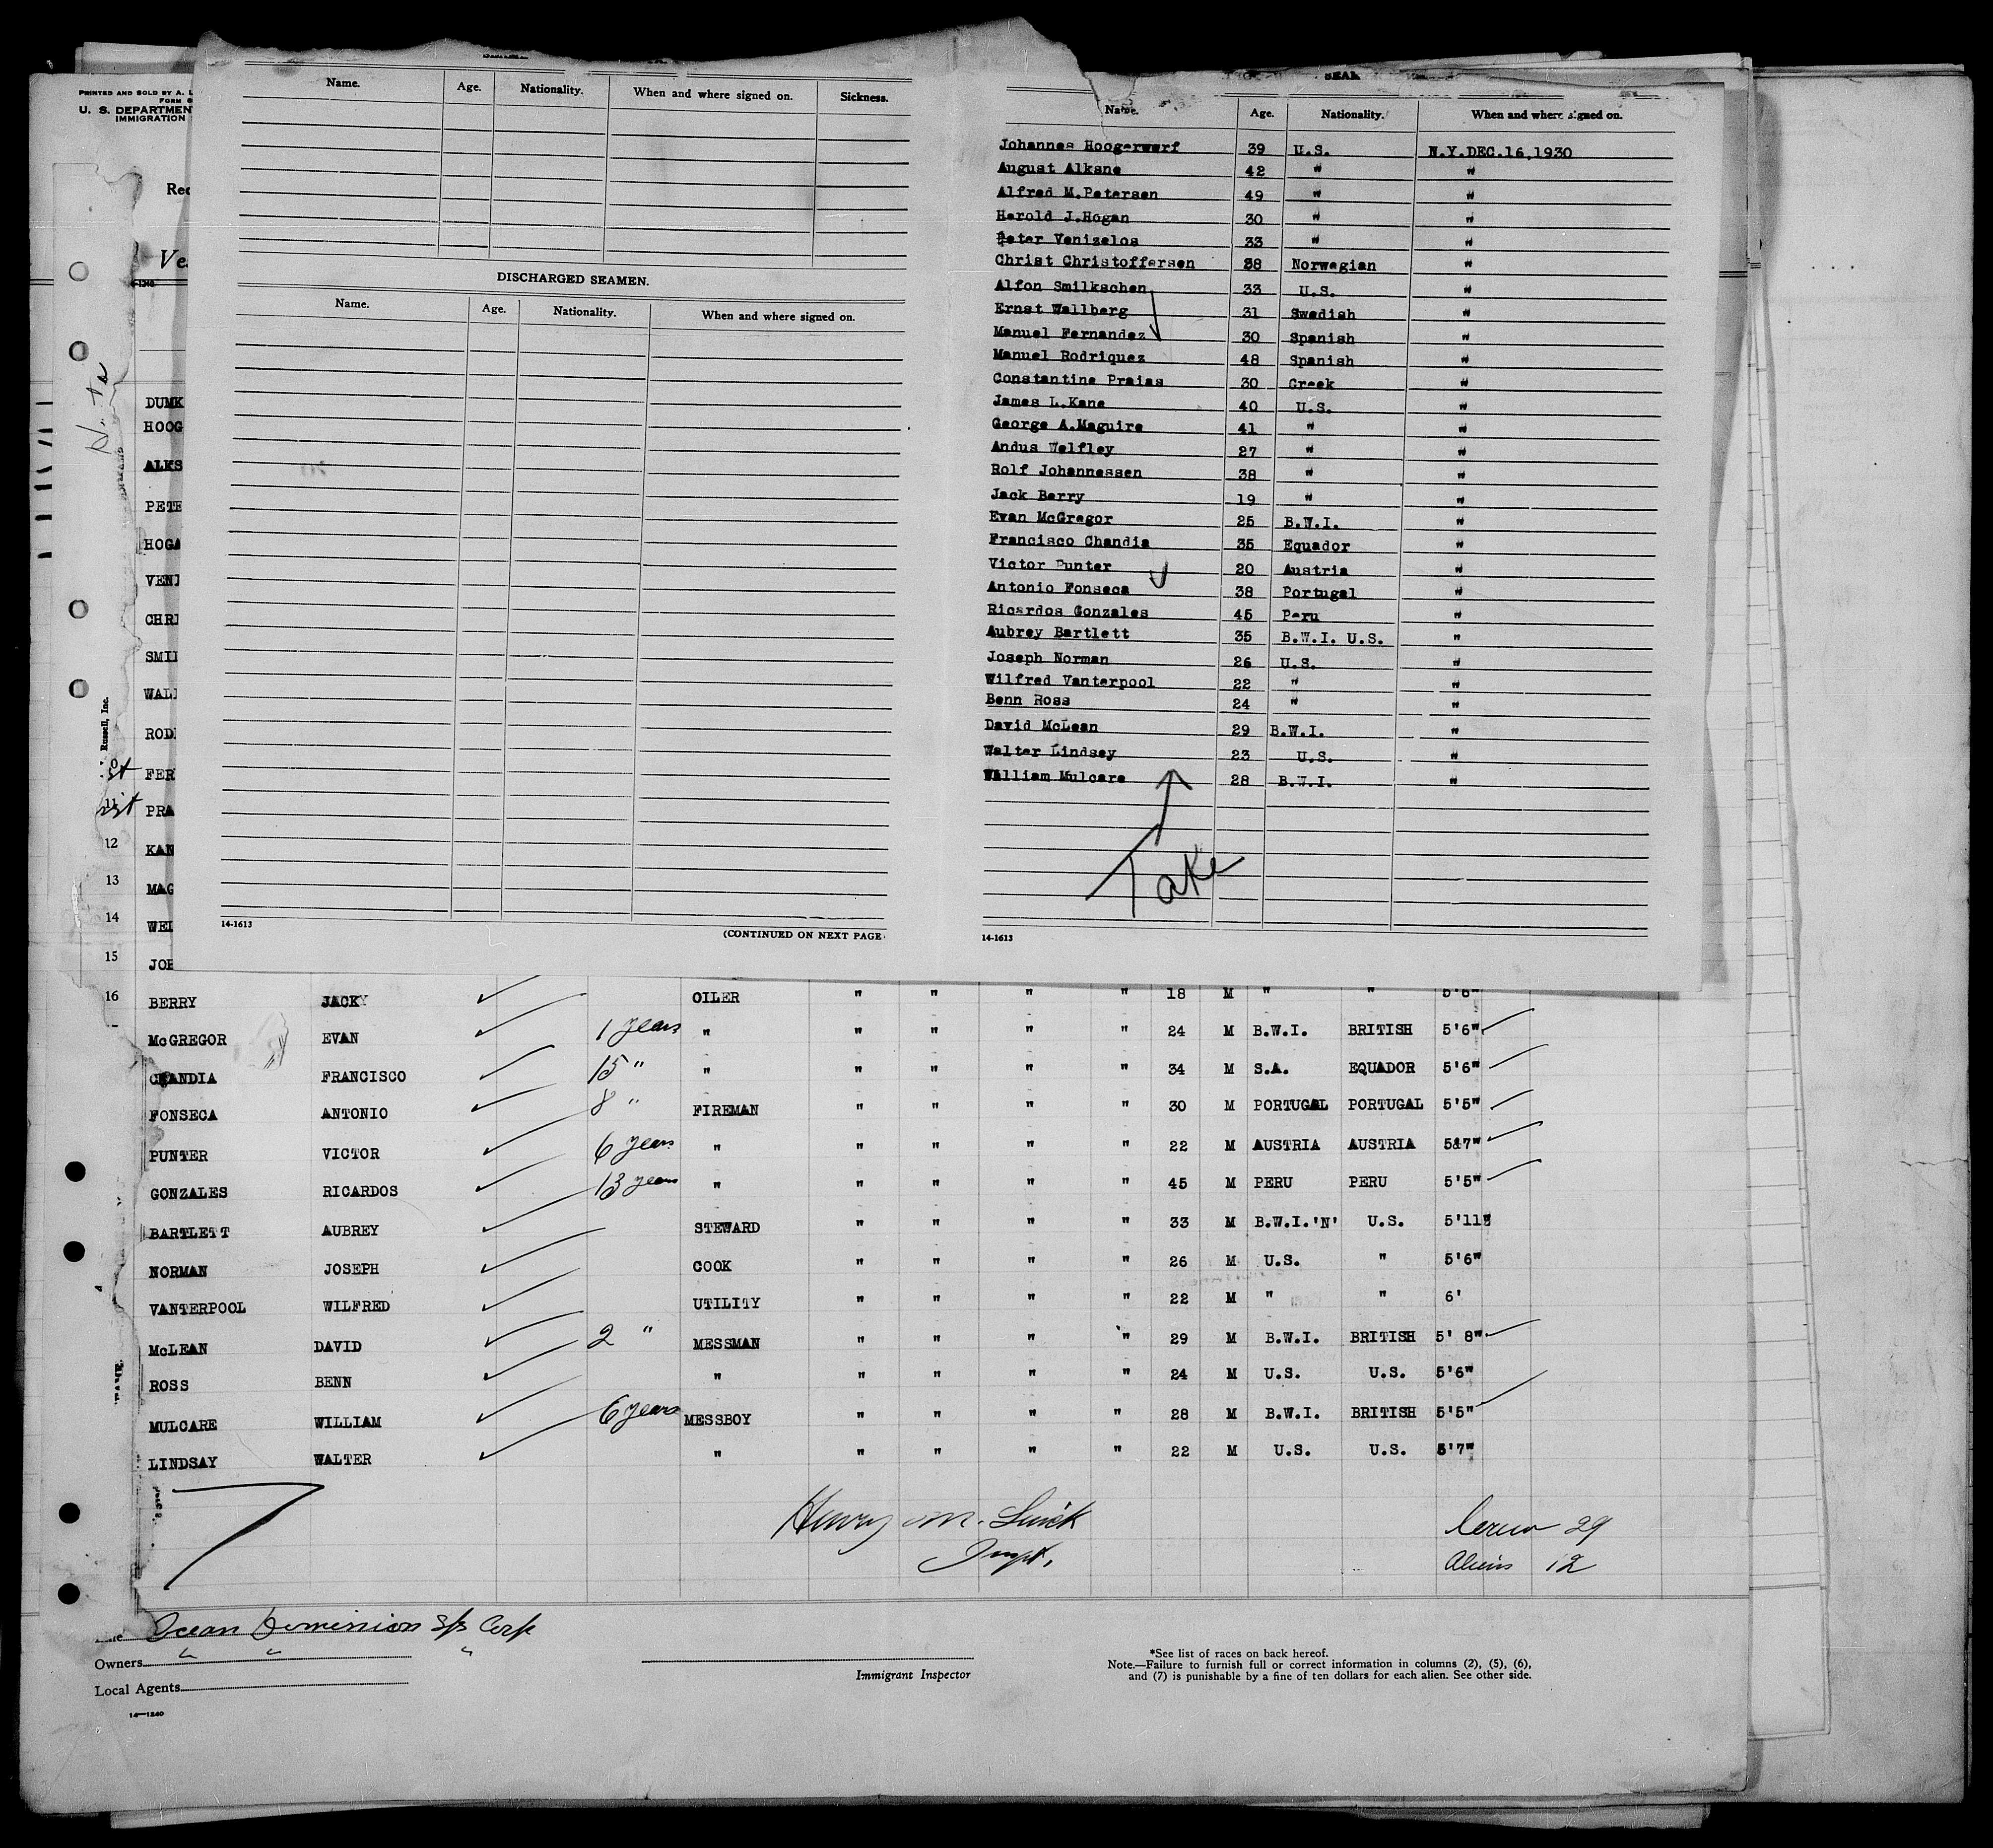 PRINTED AND SOLD BY A. L
FORM 6
U. S. DEPARTMEN
IMMIGRATION
Rec
Ve
Name. Age. Nationality. When and where signed on. Sickness.
DISCHARGED SEAMEN.
Name. Age. Nationality. When and where signed on.
14-1613
(CONTINUED ON NEXT PAGE
SEAM
Name. Age. Nationality. When and where signed on.
Johannes Hoogerwerf 39 U.S. N.Y.DEC.16,1930
August Alksne 42 " "
Alfred M.Petersen 49 " "
Harold J.Hogan 30 " "
Peter Venizelos 33 " "
Christ Christoffersen 38 Norwegian "
Alfon Smilkschen 33 U.S. "
Ernst Wallberg 31 Swedish "
Manuel Fernandez 30 Spanish "
Manuel Rodriquez 48 Spanish "
Constantine Praias 30 Greek "
James L.Kane 40 U.S. "
George A.Maguire 41 " "
Andus Welfley 27 " "
Rolf Johannessen 38 " "
Jack Berry 19 " "
Evan McGregor 25 B.W.I. "
Francisco Chandia 35 Equador "
Victor Punter 20 Austria "
Antonio Fonseca 38 Portugal "
Ricardos Gonzales 45 Peru "
Aubrey Bartlett 35 B.W.I. U.S. "
Joseph Norman 26 U.S. "
Wilfred Vanterpool 22 " "
Benn Ross 24 " "
David McLean 29 B.W.I. "
Walter Lindsey 23 U.S. "
William Mulcare 28 B.W.I. "
Take
14-1613
DUMK
HOOG
ALKS
PETE
HOGA
VENI
CHRI
SMIL
WALL
RODI
FER
11 PRA
12 KAN
13 MAG
14 WEL
15 JOH
Russell, Inc.
16 BERRY JACKY ✓ OILER " " " " 18 M " " 5'6"
McGREGOR EVAN ✓ 1 years " " " " " 24 M B.W.I. BRITISH 5'6" ✓
CHANDIA FRANCISCO ✓ 15 " " " " " " 34 M S.A. EQUADOR 5'6" ✓
FONSECA ANTONIO ✓ 8 " FIREMAN " " " " 30 M PORTUGAL PORTUGAL 5'5" ✓
PUNTER VICTOR ✓ 6 years " " " " " 22 M AUSTRIA AUSTRIA 5'7" ✓
GONZALES RICARDOS ✓ 13 years " " " " " 45 M PERU PERU 5'5" ✓
BARTLETT AUBREY ✓ STEWARD " " " " 33 M B.W.I.'N' U.S. 5'11"
NORMAN JOSEPH ✓ COOK " " " " 26 M U.S. " 5'6"
VANTERPOOL WILFRED ✓ UTILITY " " " " 22 M " " 6'
McLEAN DAVID ✓ 2 " MESSMAN " " " " 29 M B.W.I. BRITISH 5' 8" ✓
ROSS BENN ✓ " " " " " 24 M U.S. U.S. 5'6"
MULCARE WILLIAM ✓ 6 years MESSBOY " " " " 28 M B.W.I. BRITISH 5'5" ✓
LINDSAY WALTER ✓ " " " " " 22 M U.S. U.S. 5'7"
Henry M.
Inspt.
Crew 29
Aliens 12
Ocean Dominion S/S Corp
Owners " " "
Local Agents
Immigrant Inspector
*See list of races on back hereof.
Note.—Failure to furnish full or correct information in columns (2), (5), (6),
and (7) is punishable by a fine of ten dollars for each alien. See other side.
14—1240